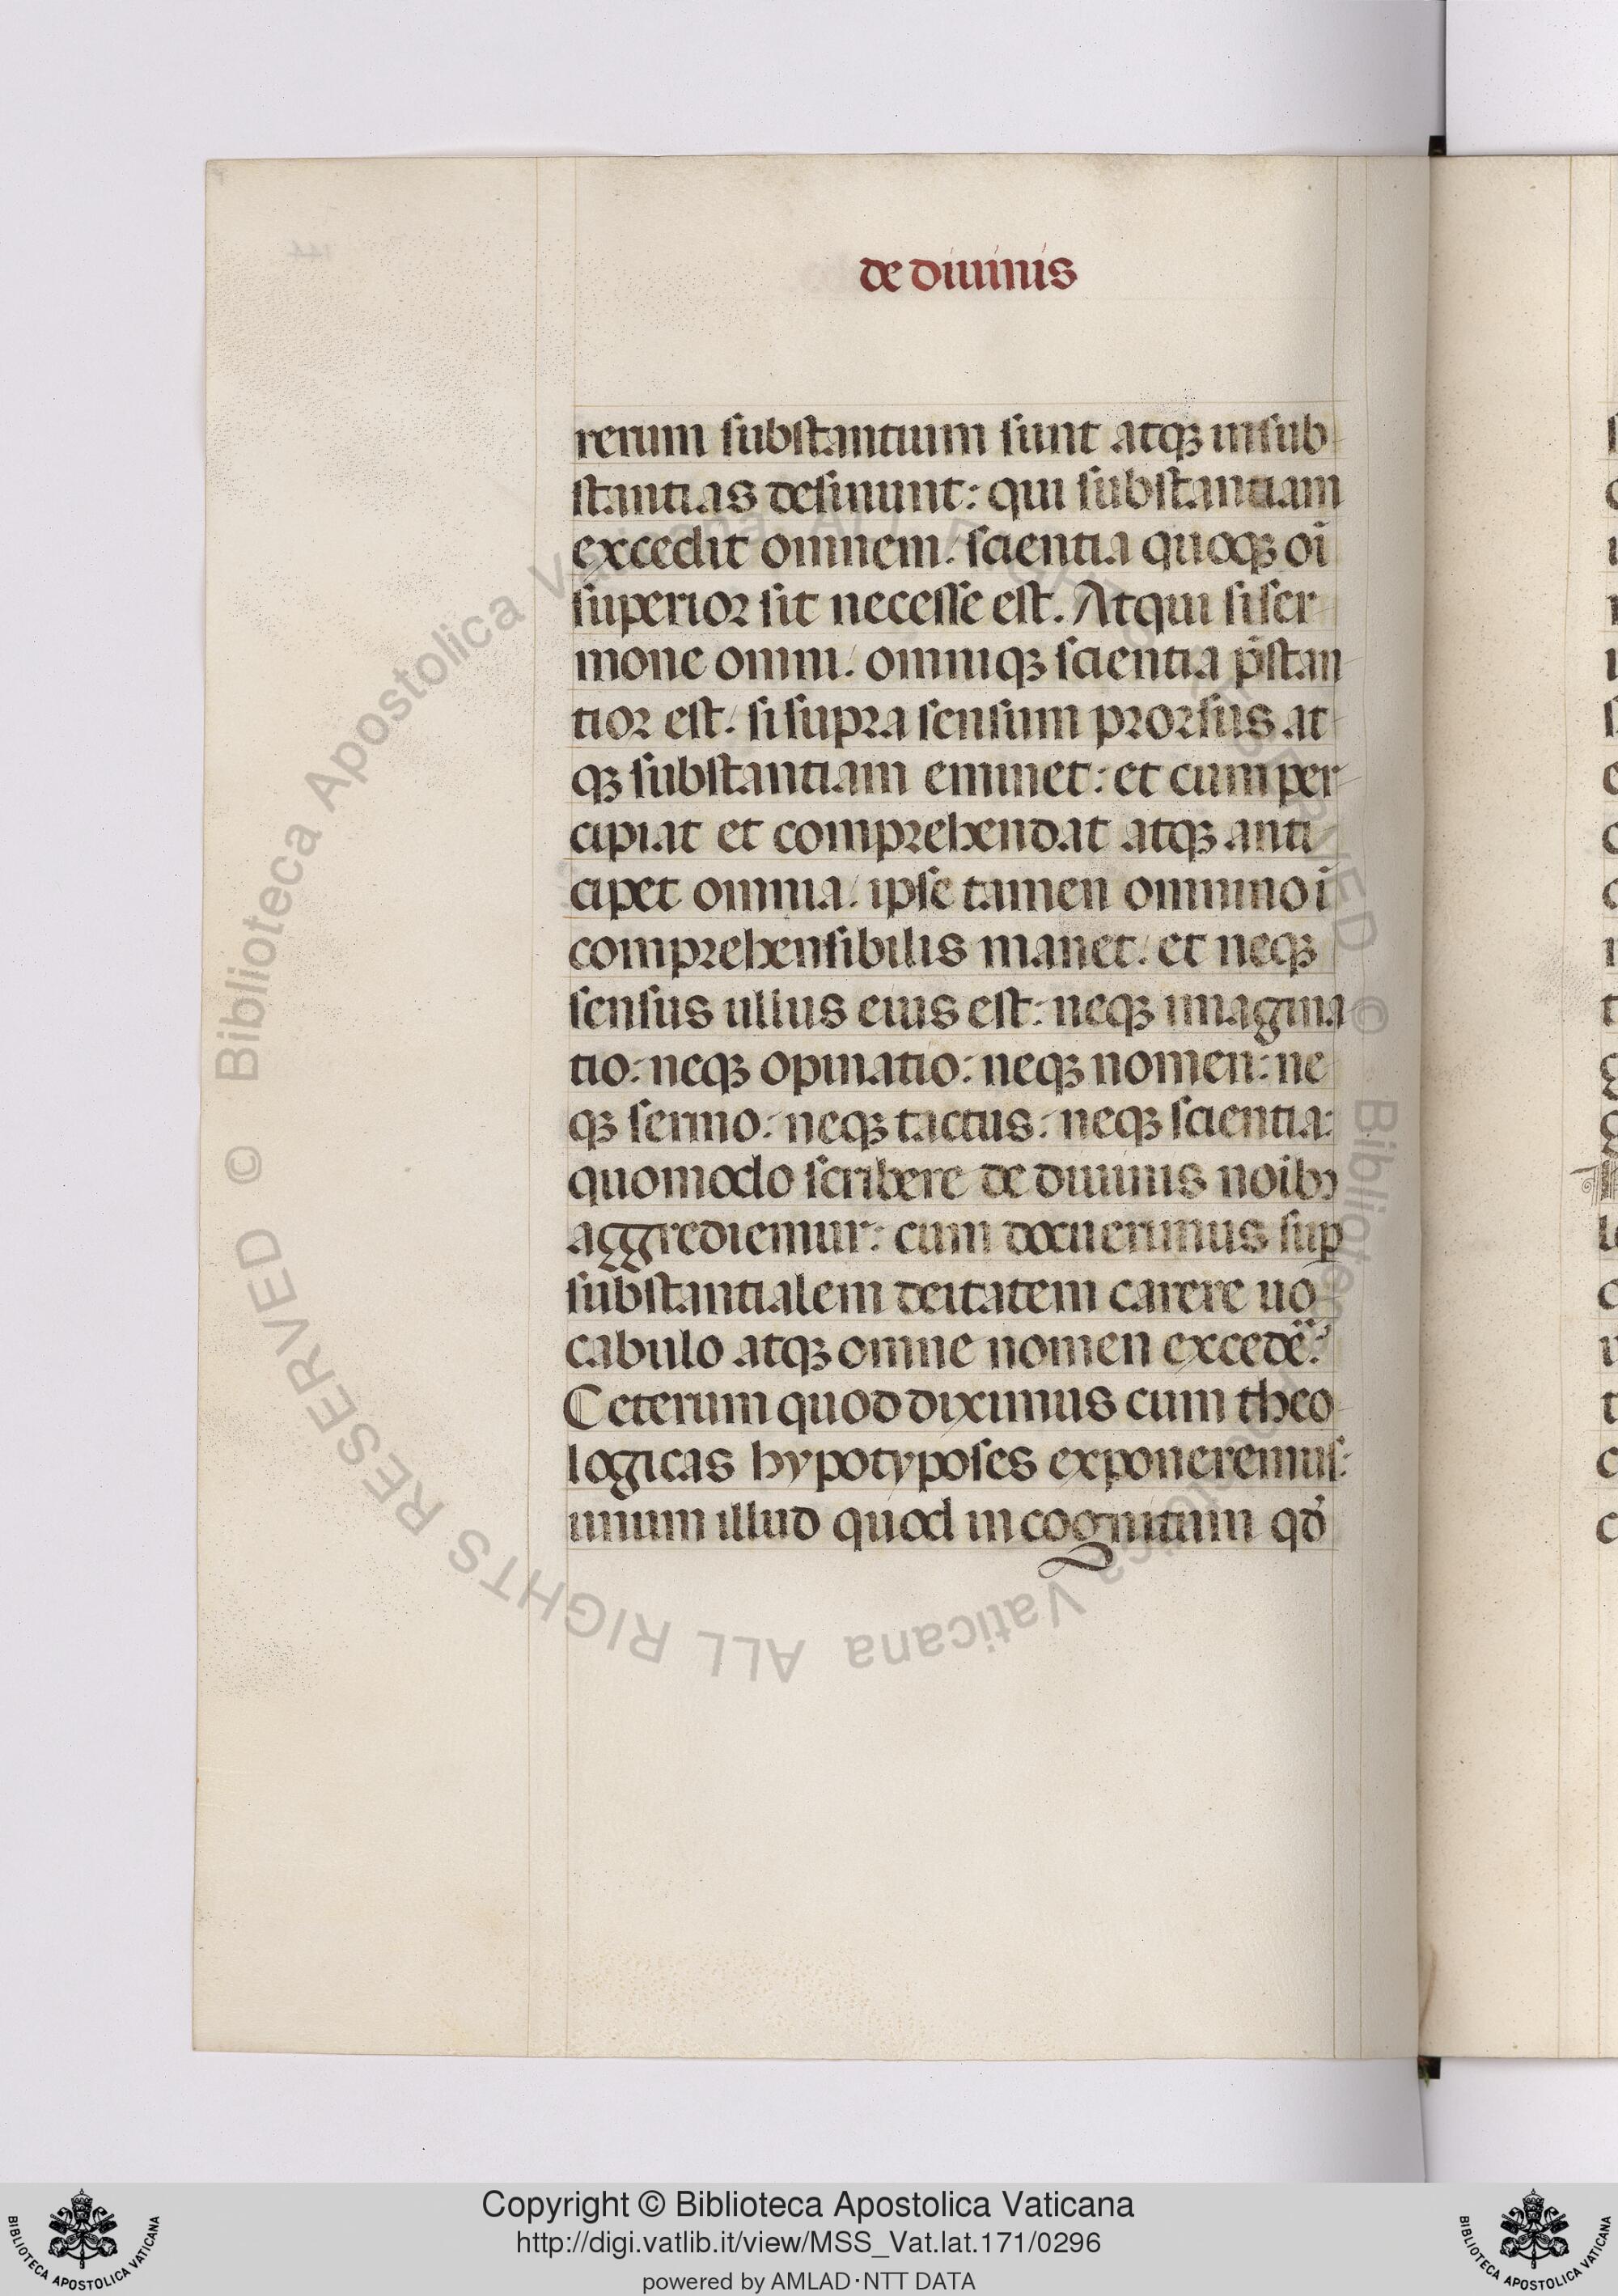 de diuinis
rerum substantium sunt atqꝫ insub
stantias desinunt: qui substantiam
excedit omnem. scientia quoqꝫ oī
superior sit necesse est. Atqui si ser
mone omni. omniqꝫ scientia p̄stan
tior est. si supra sensum prorsus at
qꝫ substantiam eminet: et cum per
cipiat et comprehendat atqꝫ anti
cipet omnia. ipse tamen omnino ī
comprehensibilis manet. et neqꝫ
sensus ullus eius est: neqꝫ imagina
tio: neqꝫ opinatio: neqꝫ nomen: ne
qꝫ sermo: neqꝫ tactus: neqꝫ scientia:
quomodo scribere de diuinis noibꝫ
aggrediemur: cum docuerimus suꝑ
substantialem deitatem carere uo
cabulo atqꝫ omne nomen excedē?
Ceterum quod diximus cum theo
logicas hypotyposes exponeremus:
unum illud quod incognitum qd̓
© Biblioteca Apostolica Vaticana ALL RIGHTS RESERVED © Biblioteca Apostolica Vaticana ALL RIGHTS RESERVED
Copyright © Biblioteca Apostolica Vaticana
http://digi.vatlib.it/view/MSS_Vat.lat.171/0296
powered by AMLAD·NTT DATA
BIBLIOTECA APOSTOLICA VATICANA
BIBLIOTECA APOSTOLICA VATICANA